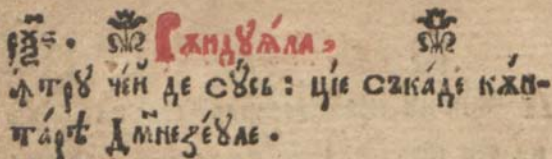 Рѫндуꙗ́ла,
ꙟ҆трꙋ̀ че́й де сꙋ́сь : ціе съка́де кѫн-
та́рѣ Дм҃незе́ꙋле .